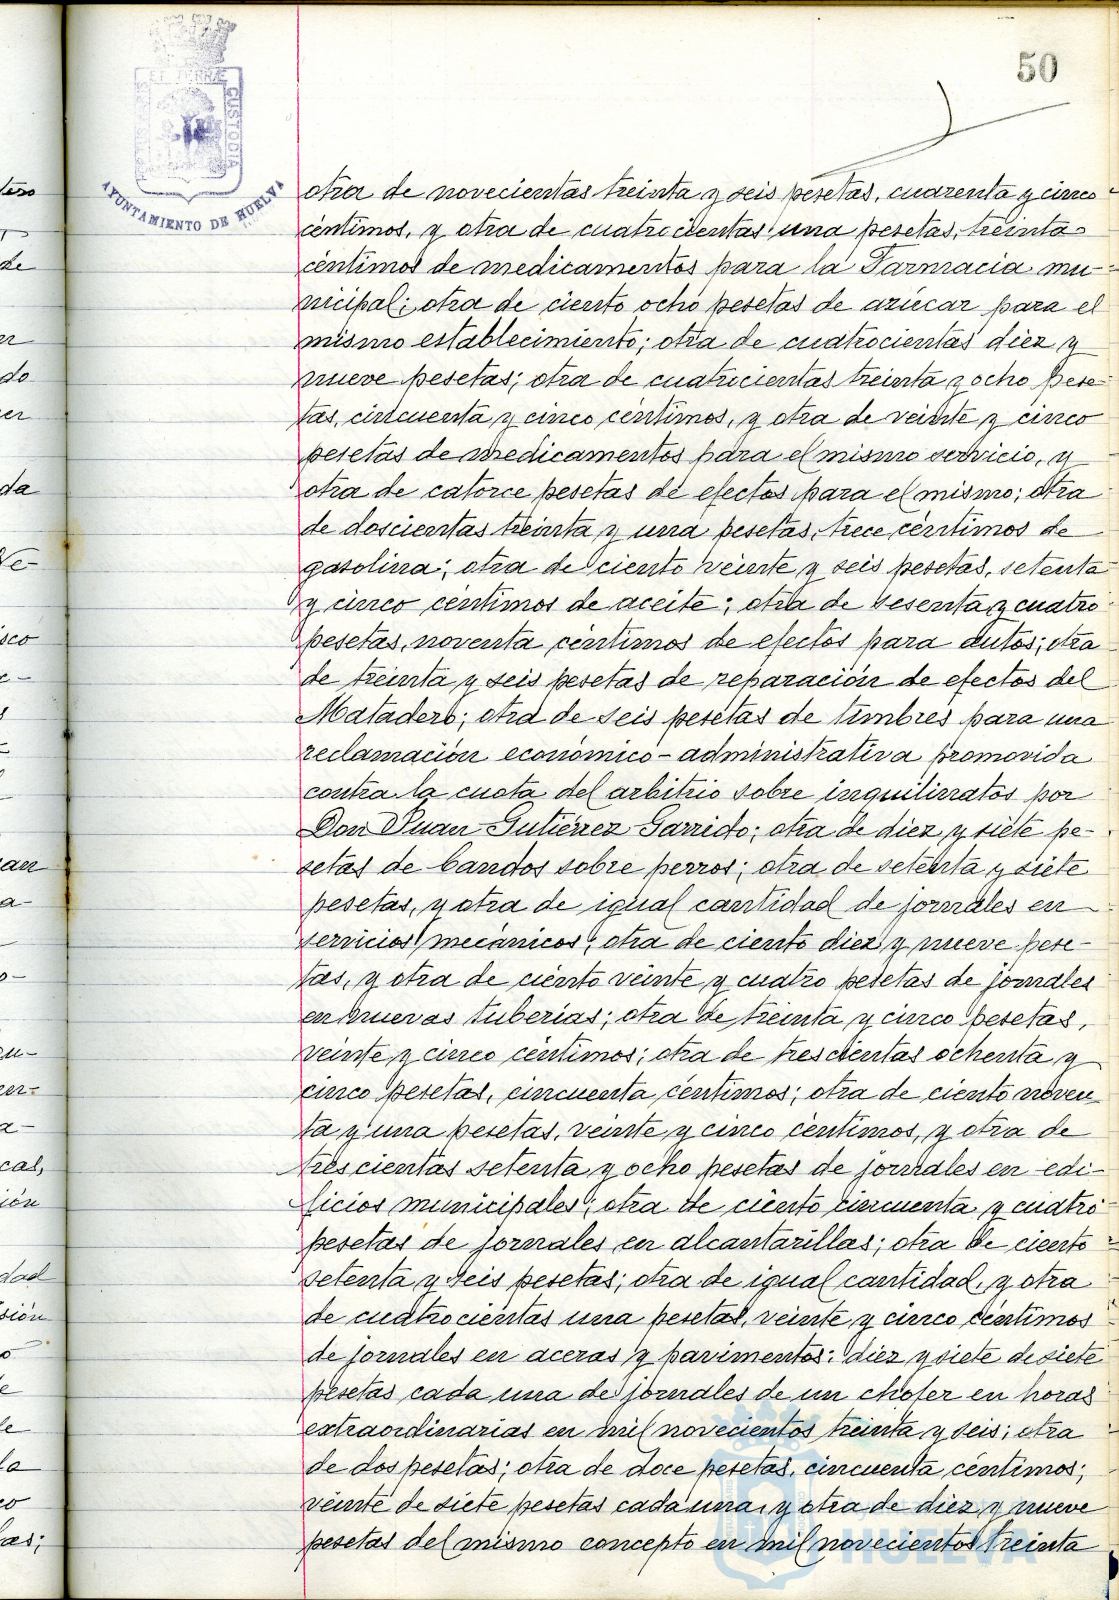 50
ET TERRÆ CUSTODIA
AYUNTAMIENTO DE HUELVA
otra de novecientas treinta y seis pesetas, cuarenta y cinco
céntimos, y otra de cuatrocientas una pesetas, treinta
céntimos de medicamentos para la Farmacia mu-
nicipal; otra de ciento ocho pesetas de azúcar para el
mismo establecimiento; otra de cuatrocientas diez y
nueve pesetas; otra de cuatrocientas treinta y ocho pese-
tas, cincuenta y cinco céntimos, y otra de veinte y cinco
pesetas de medicamentos para el mismo servicio, y
otra de catorce pesetas de efectos para el mismo; otra
de doscientas treinta y una pesetas, trece céntimos de
gasolina; otra de ciento veinte y seis pesetas, setenta
y cinco céntimos de aceite; otra de sesenta y cuatro
pesetas, noventa céntimos de efectos para autos; otra
de treinta y seis pesetas de reparación de efectos del
Matadero; otra de seis pesetas de timbres para una
reclamación económico-administrativa promovida
contra la cuota del arbitrio sobre inquilinatos por
Don Juan Gutiérrez Garrido; otra de diez y siete pe-
setas de bandos sobre perros; otra de setenta y siete
pesetas, y otra de igual cantidad de jornales en
servicios mecánicos; otra de ciento diez y nueve pese-
tas, y otra de ciento veinte y cuatro pesetas de jornales
en nuevas tuberías; otra de treinta y cinco pesetas,
veinte y cinco céntimos; otra de trescientas ochenta y
cinco pesetas, cincuenta céntimos; otra de ciento noven-
ta y una pesetas, veinte y cinco céntimos, y otra de
trescientas setenta y ocho pesetas de jornales en edi-
ficios municipales; otra de ciento cincuenta y cuatro
pesetas de jornales en alcantarillas; otra de ciento
setenta y seis pesetas; otra de igual cantidad, y otra
de cuatrocientas una pesetas, veinte y cinco céntimos
de jornales en aceras y pavimentos; diez y siete de siete
pesetas cada una de jornales de un chofer en horas
extraordinarias en mil novecientos treinta y seis; otra
de dos pesetas; otra de doce pesetas, cincuenta céntimos;
veinte de siete pesetas cada una, y otra de diez y nueve
pesetas del mismo concepto en mil novecientos treinta
HUELVA